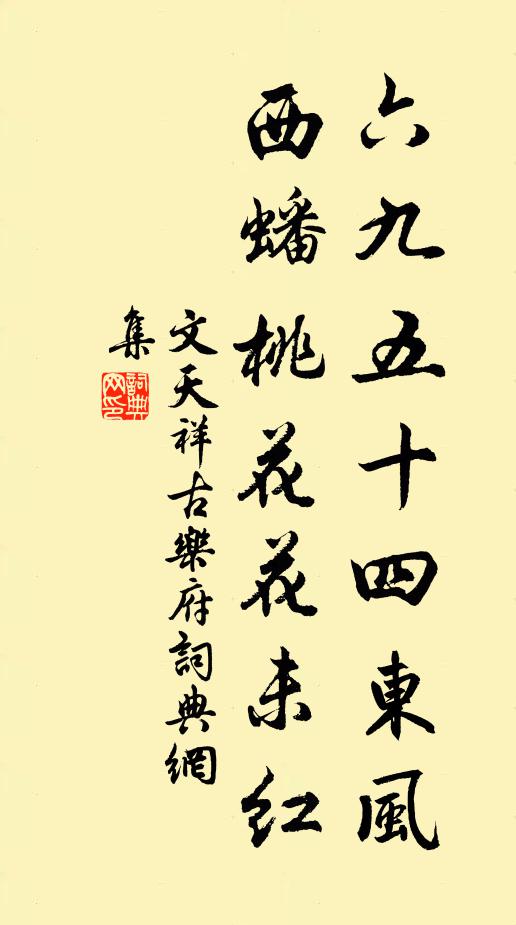 六九五十四東風
西蟠桃花花未紅
文天祥古樂府詞典網
集
詞典
网印